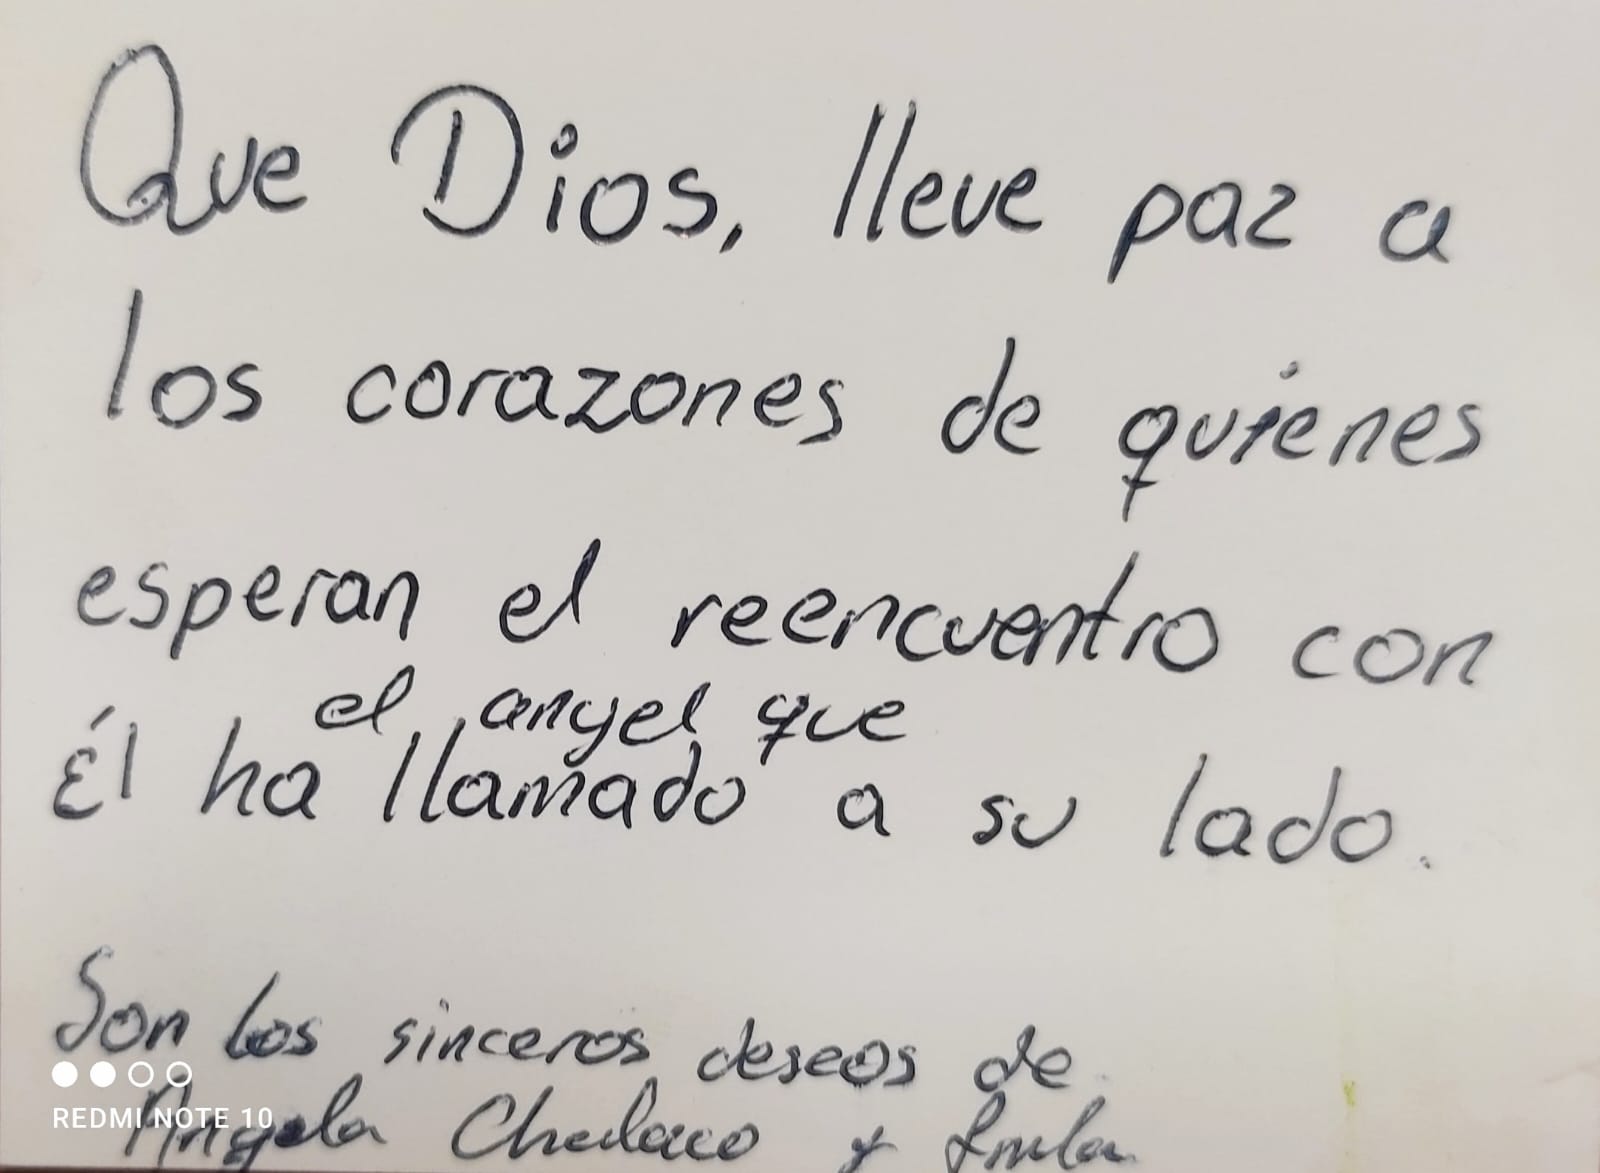 Que Dios, lleve paz a
los corazones de quienes
esperan el reencuentro con
el angel que
Él ha llamado a su lado.
Son los sinceros deseos de
REDMI NOTE 10
Angela y